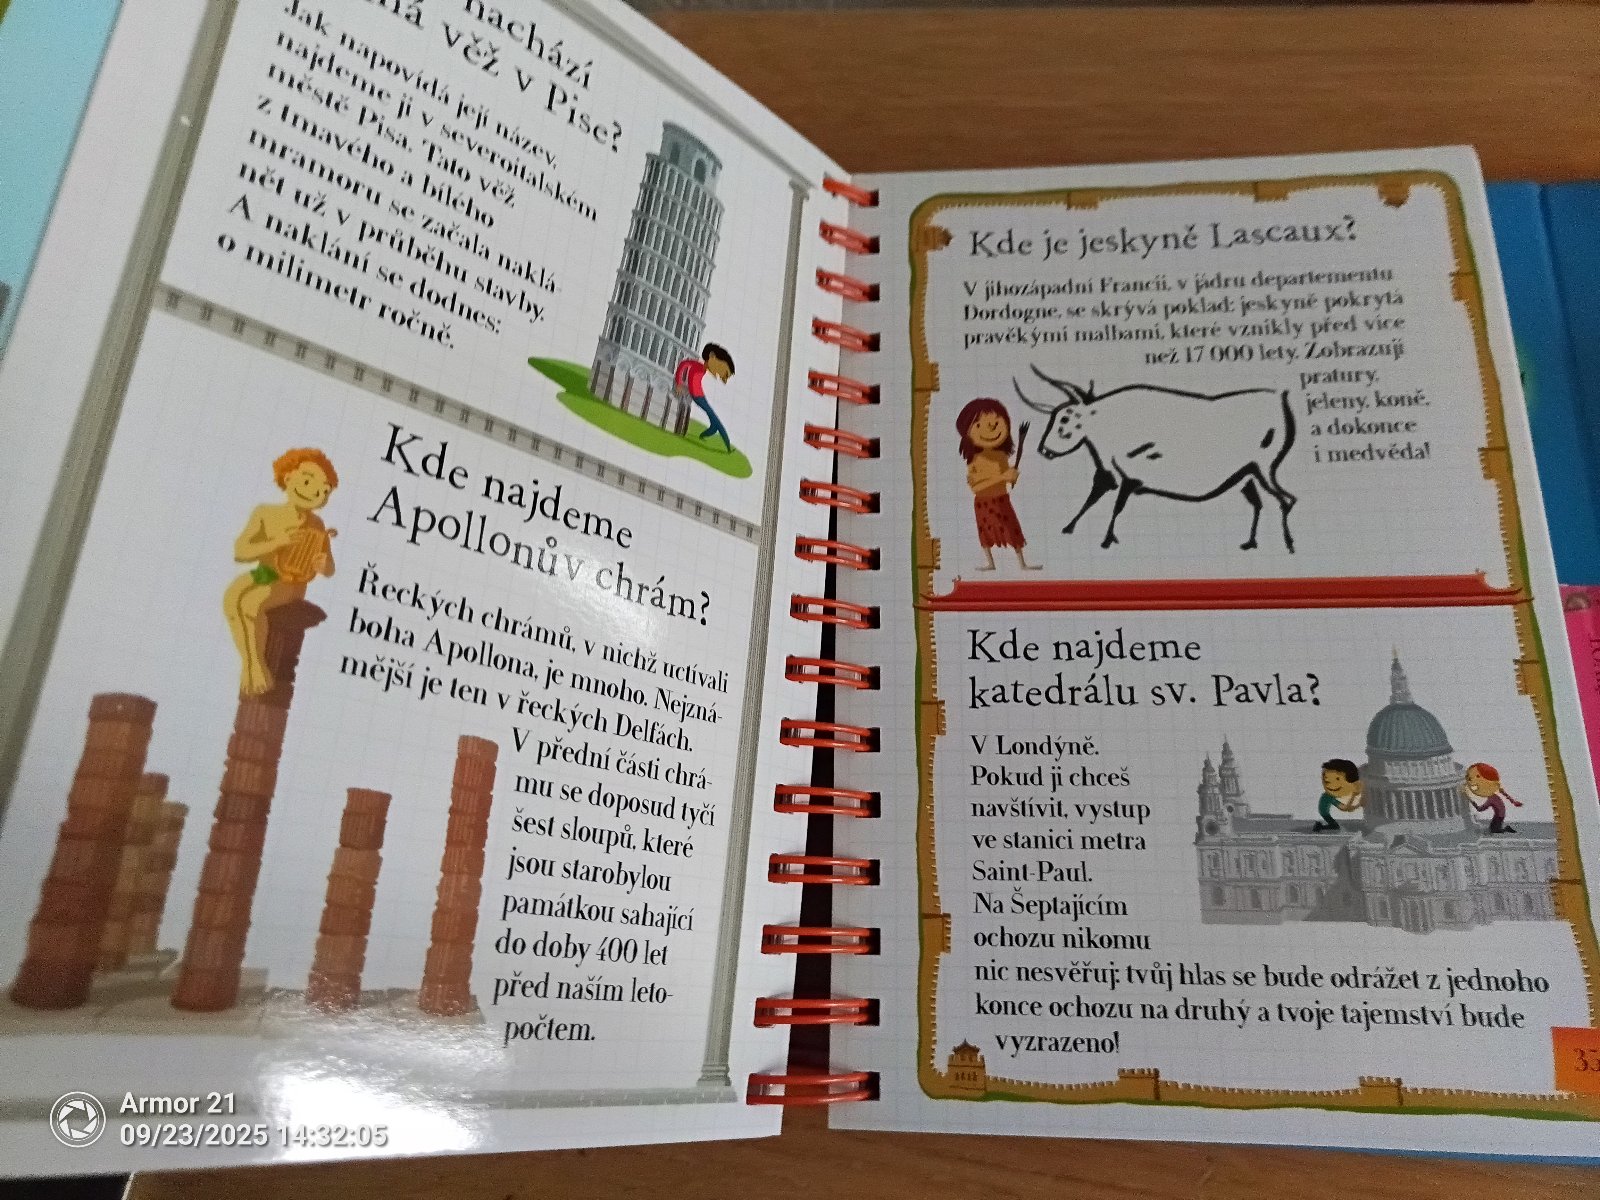 nachází
ná věž v Pise?
Jak napovídá její název,
najdeme ji v severoitalském
městě Pisa. Tato věž
z tmavého a bílého
mramoru se začala naklá-
nět už v průběhu stavby.
A naklání se dodnes:
o milimetr ročně.
Kde najdeme
Apollonův chrám?
Řeckých chrámů, v nichž uctívali
boha Apollona, je mnoho. Nejzná-
mější je ten v řeckých Delfách.
V přední části chrá-
mu se doposud tyčí
šest sloupů, které
jsou starobylou
památkou sahající
do doby 400 let
před naším leto-
počtem.
Kde je jeskyně Lascaux?
V jihozápadní Francii, v jádru departementu
Dordogne, se skrývá poklad: jeskyně pokrytá
pravěkými malbami, které vznikly před více
než 17 000 lety. Zobrazují
pratury,
jeleny, koně,
a dokonce
i medvěda!
Kde najdeme
katedrálu sv. Pavla?
V Londýně.
Pokud ji chceš
navštívit, vystup
ve stanici metra
Saint-Paul.
Na Šeptajícím
ochozu nikomu
nic nesvěřuj: tvůj hlas se bude odrážet z jednoho
konce ochozu na druhý a tvoje tajemství bude
vyzrazeno!
Armor 21
09/23/2025 14:32:05